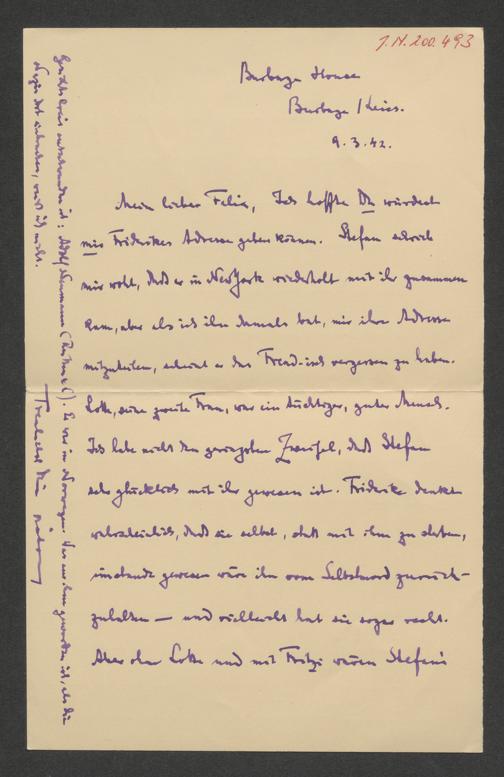 J.N. 200.493
Burbage House
Burbage / Leics.
9.3.42.
Mein lieber Felix, Ich hoffte Du würdest
mir Friderikes Adresse geben können. Stefan schrieb
mir wohl, daß er in New York wiederholt mit ihr zusammen
kam, aber als ich ihn damals bat, mir ihre Adresse
mitzuteilen, scheint er das vergessen zu haben.
Lotte, seine zweite Frau, war ein tüchtiger, guter Mensch.
Ich habe nicht den geringsten Zweifel, daß Stefan
sehr glücklich mit ihr gewesen ist. Friderike denkt
wahrscheinlich, daß sie selbst, statt mit ihm zu sterben,
imstande gewesen wäre ihn vom Selbstmord zurück-
zuhalten — und vielleicht hat sie sogar recht.
Aber ohne Lotte und mit Fritzi wären Stefans
entstanden ist: Adolf Neumann. Er war in Norwegen. Was aus ihm geworden ist, als die
Nazis dort einbrachen, weiß ich nicht.